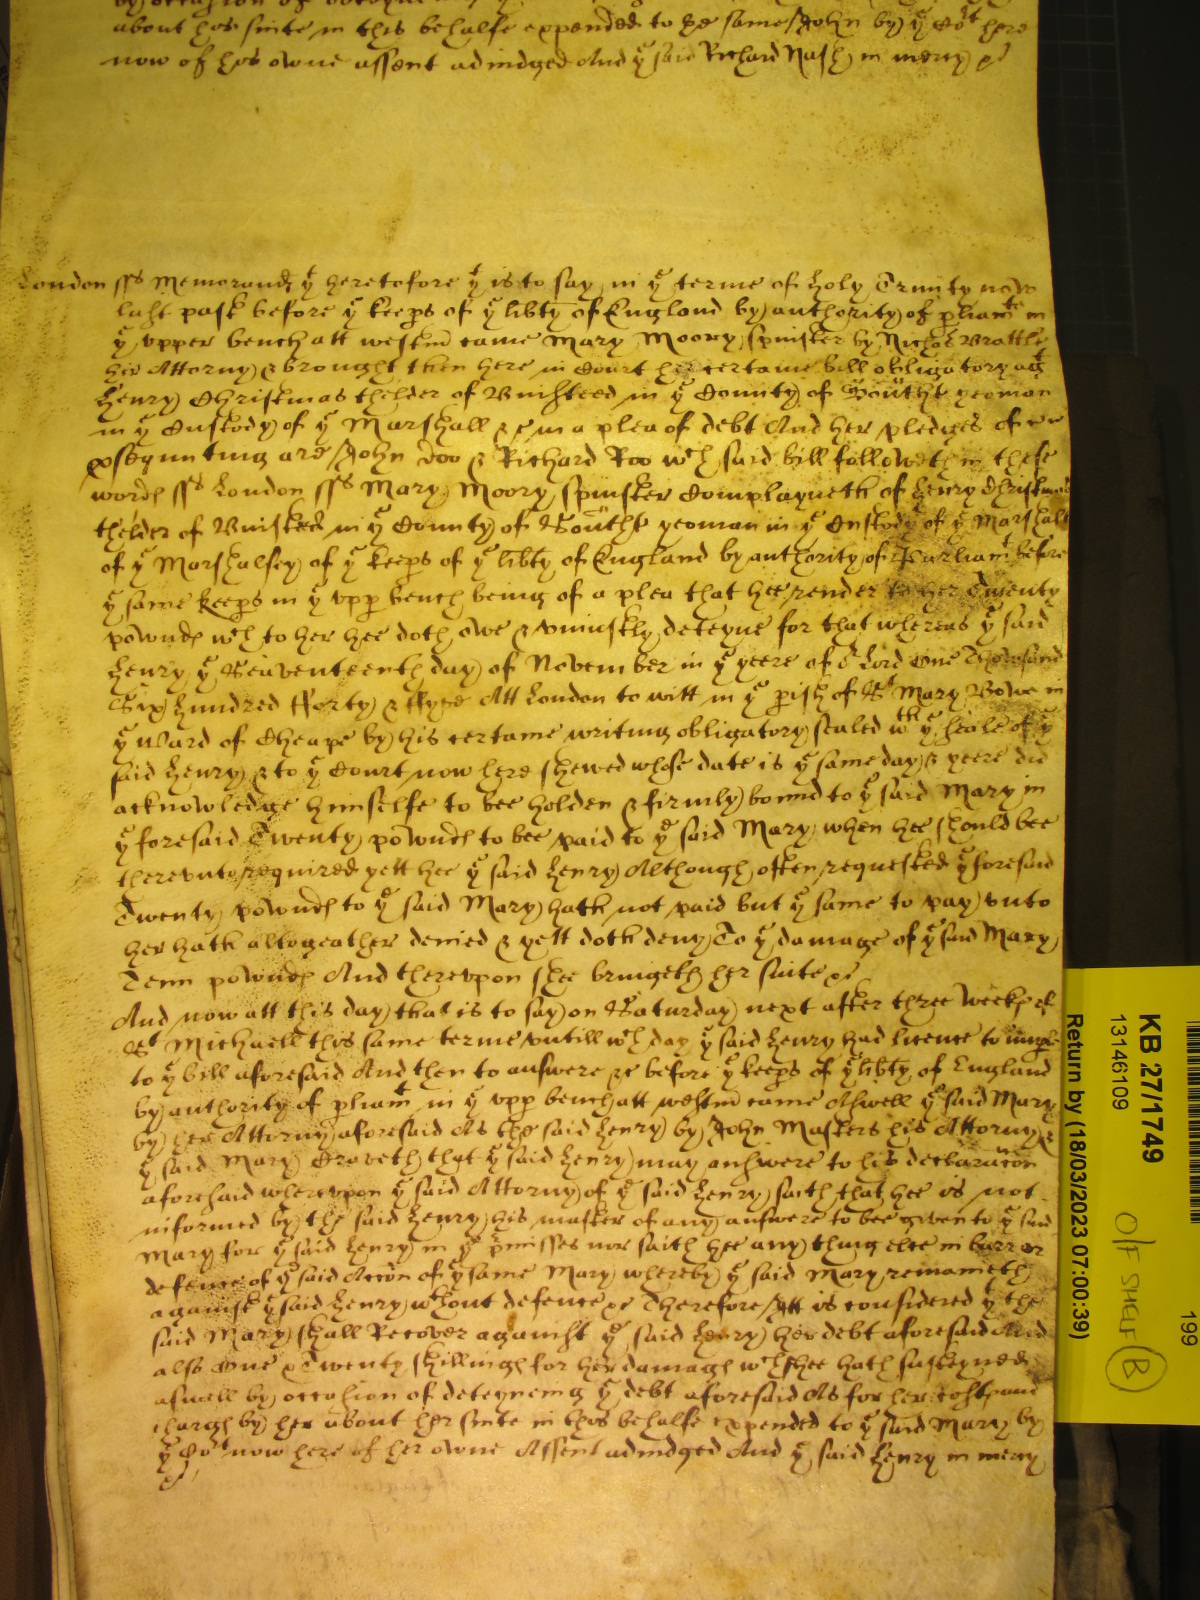 by occasion of
about his suite in this behalfe expended to ye same John by ye Cort here
now of his owne assent adiudged And ye said Richard Nash in mercy &c
London sss Memorand yt heretofore yt is to say in ye terme of holy Trinity now
last past before ye keeps of ye libty of England by authority of pliamte in
ye vpper bench att westm came Mary Moory spinster by Nichas Brattle
her Attorny & brought then here in Court her certaine bill obligatory agt
Henry Christmas thelder of Bursteed in ye County of Southt yeoman
in ye Custody of ye Marshall &c in a plea of debt And her pledges of
psequnting are John doo & Richard Roo wch said bill followeth in these
words sss London sss Mary Moory spinster Complayneth of Henry Christmas
thelder of Bursted in ye County of Southt yeoman in ye Custody of ye Marshall
of ye Marshalsey of ye keeps of ye libty of England by authority of Parliamt before
ye same keeps in ye vpp bench being of a plea that hee render to her Twenty
pownds wch to her hee doth owe & vniustly deteyne for that whereas ye said
Henry ye Seaventeenth day of November in ye yeere of or Lord One Thowsand
Six hundred fforty & ffyve Att London to witt in ye pish of St Mary Bowe in
ye Ward of Cheape by his certaine writing obligatory sealed wth ye seale of ye
said Henry & to ye Court now here shewed whose date is ye same day & yeere did
acknowledge himselfe to bee holden & firmly bound to ye said Mary in
ye foresaid Twenty pownds to bee paid to ye said Mary when hee should bee
therevnto required yett hee ye said Henry Although often requested ye foresaid
Twenty pownds to ye said Mary hath not paid but ye same to pay vnto
her hath altogeather denied & yett doth deny To ye damage of ye said Mary
Tenn pownds And therevpon shee bringeth her suite &c
And now att this day that is to say on Saturday next after three weekes of
St Michaell this same terme vntill wch day ye said Henry had licence to imple
to ye bill aforesaid And then to answere &c before ye keeps of ye libty of England
by authority of pliamt in ye vpp bench att westm came Aswell ye said Mary
by her Attorny aforesaid As the said Henry by John Masters his Attorny &
ye said Mary Craveth that ye said Henry may answere to his declaracon
aforesaid wherevpon ye said Attorny of ye said Henry saith that hee is not
informed by the said Henry his master of any answere to bee given to ye said
Mary for ye said Henry in ye pmisses nor saith hee any thing else in barr or
defence of ye said Accon of ye same Mary whereby ye said Mary remaineth
against ye said Henry wthout defence &c Therefore Itt is considered yt the
said Mary shall Recover against ye said Henry her debt aforesaid And
also One & Twenty shillings for her damags wch shee hath susteyned
aswell by occasion of deteyneing ye debt aforesaid As for her costs and
chargs by her about her suite in this behalfe expended to ye said Mary by
ye Cort now here of her owne Assent adiudged And ye said Henry in mercy
&c
KB 27/1749
13146109
Return by (18/03/2023 07:00:39)
199
O/F SHELF B